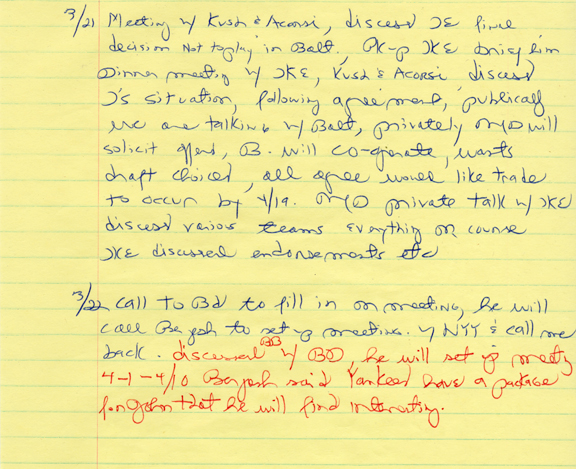 3/21 Meeting w/ Kush & Acorsi, discussd JE final
decision Not to play in Balt. PK-p JKE brief him
Dinner meeting w/ JKE, Kush & Acorsi discussd
J's situation, following agreement, publically
we are talking w/ Balt, privately MJD will
solicit offers, B. will co-operate, wants
draft choices, all agree would like trade
to occur by 4/19. MJD private talk w/ JKE
discussd various teams everything on course
JKE discussed endorsements etc
3/22 call to BD to fill in on meeting, he will
call Bergesh to set up meeting w/ NYY & call me
back. discussed BB w/ BD, he will set up meeting
4-1-4/10 Bergesh said Yankees have a package
for John that he will find interesting.